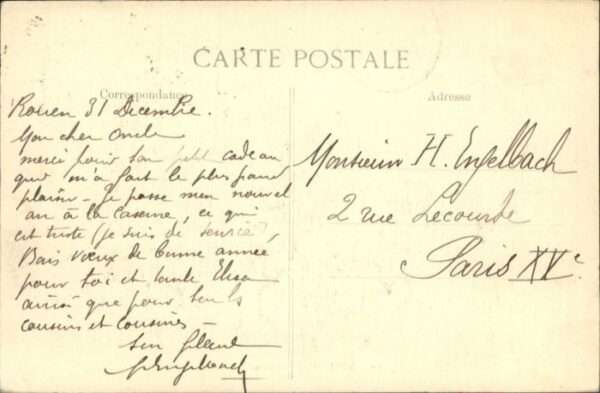 CARTE POSTALE
Correspondance
Adresse
Rouen 31 Décembre.
Mon cher Oncle
merci pour ton petit cadeau
qui m'a fait le plus grand
plaisir - Je passe mon nouvel
an à la caserne, ce qui
est triste (je suis de service),
Bons vœux de bonne année
pour toi et tante Elisa
ainsi que pour
cousins et cousines -
ton
Engelbach
Monsieur H. Engelbach
2 rue Lecourbe
Paris XVe